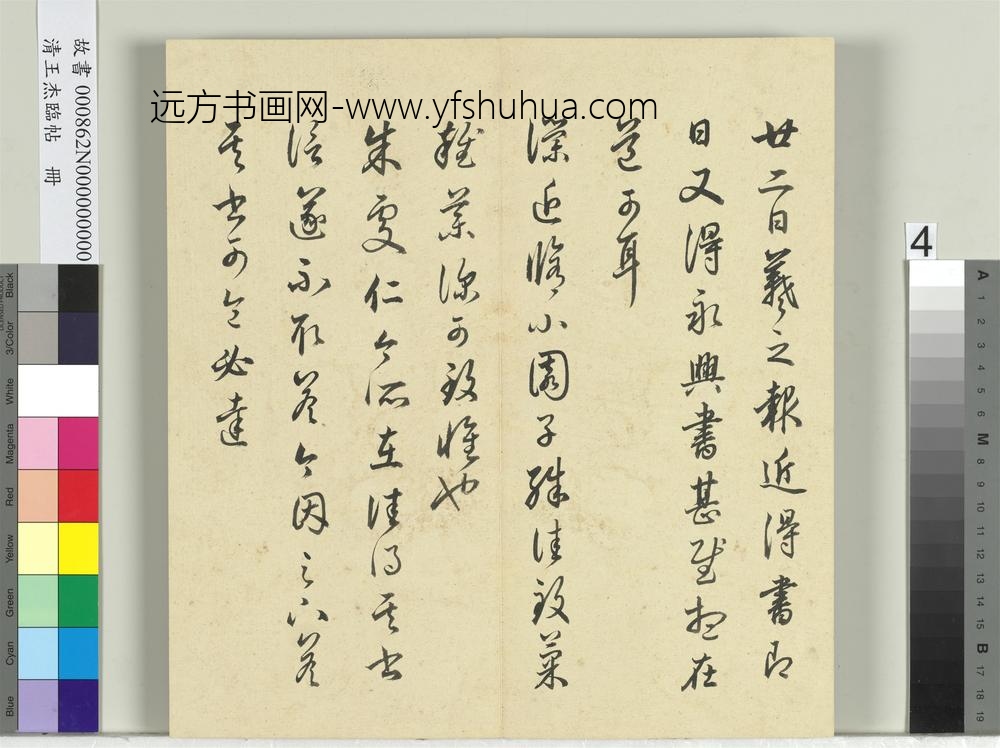 廿二日羲之報近得書即
日又得永興書甚慰想在
道可耳
濮近脩小園子殊佳致菓
雜藥深可致懷也
朱處仁今所在往得其書
信遂不取答今因足下答
其書可令必達
远方书画网-www.yfshuhua.com
故書 000862N000000000
清王杰臨帖 冊
4
Black
3/Color
White
Magenta
Red
Yellow
Green
Cyan
Blue
A
1
2
3
4
5
6
M
8
9
10
11
12
13
14
15
B
17
18
19